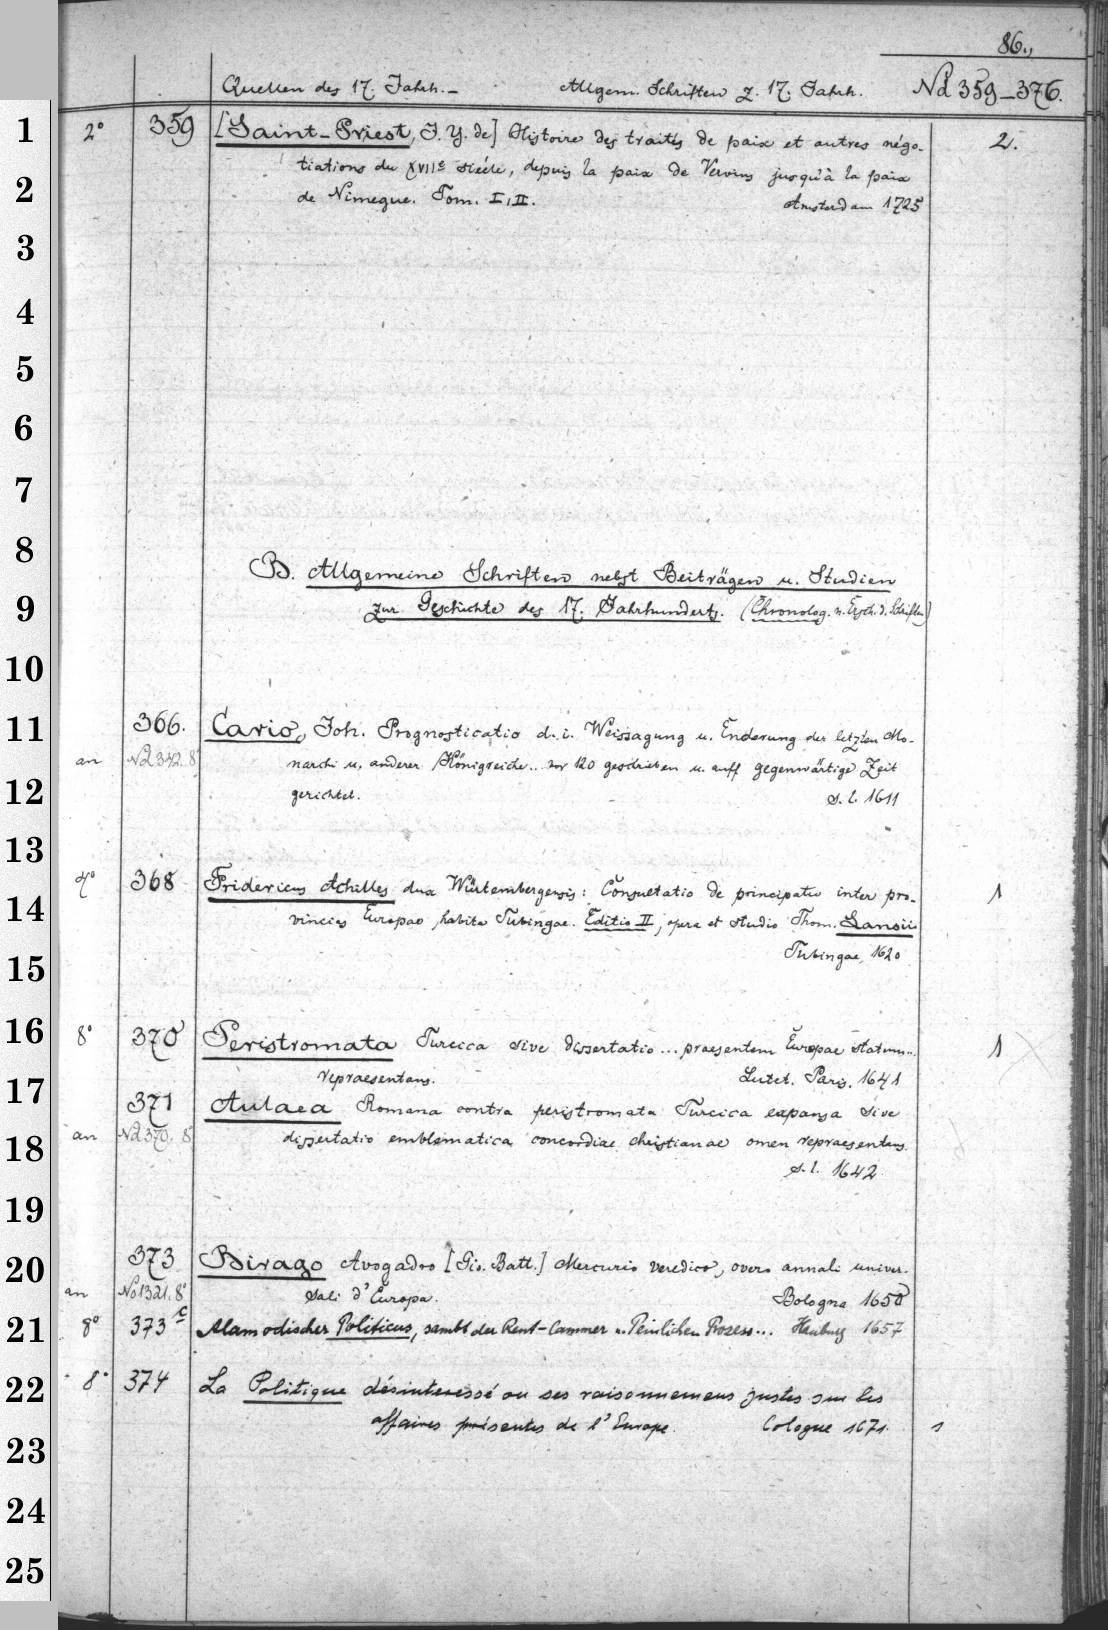 86.,
Quellen des 17. Jahrh. – Allgem. Schriften z. 17. Jahrh. Nd 359–376.
1 2° 359 [Saint-Priest, J. Y. de] Histoire des traités de paix et autres négo- 2.
tiations du XVIIe siécle, depuis la paix de Vervins jusqu'à la paix
2 de Nimegue. Tom. I, II. Amsterdam 1725
3
4
5
6
7
8 B. Allgemeine Schriften nebst Beiträgen u. Studien
9 zur Geschichte des 17. Jahrhunderts. (Chronolog. n. Ersch. d. Schriften)
10
11 366. Cario, Joh. Prognosticatio d. i. Weissagung u. Enderung der letzten Mo-
an Nd 342. 8° narchi u. anderer Königreiche.. vor 120 geschrieben u. auff gegenwärtige Zeit
12 gerichtet. s. l. 1611
13
4° 368 Fridericus Achilles dux Würtembergensis: Consultatio de principatu inter pro- 1
14 vincias Europae habita Tubingae. Editio II, opera et studio Thom. Lansii
15 Tubingae, 1620
16 8° 370 Peristromata Turcica sive dissertatio ... praesentem Europae statum.. 1
repraesentans. Lutet. Paris. 1641
17 371 Aulaea Romana contra peristromata Turcica expansa sive
18 an Nd 370. 8° dissertatio emblematica concordiae christianae omen repraesentans.
s. l. 1642
19
20 373 Birago Avogadro [Gio. Batt.] Mercurio veredico, overo annali univer-
an No 1321. 8° sali d'Europa. Bologna 1650
21 8° 373c Alamodischer Politicus, sambt der Rent-Cammer u. Peinlichen Prozess... Hamburg 1657
22 8° 374 La Politique désinteressé ou ses raisonnemens justes sur les
affaires présentes de l'Europe. Cologne 1671. 1
23
24
25